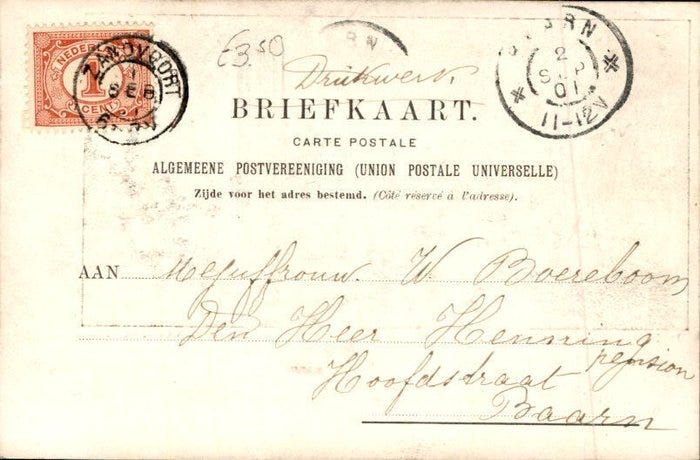 NEDERL
1
CENT
ZANDVOORT
SEP
£3.50
RN
BAARN
2
SEP
01
11-12V
Drukwerk
BRIEFKAART.
CARTE POSTALE
ALGEMEENE POSTVEREENIGING (UNION POSTALE UNIVERSELLE)
Zijde voor het adres bestemd. (Côté réservé à l'adresse).
AAN Mejuffrouw. W Boereboom
Den Heer Henning
pension
Hoofdstraat
Baarn